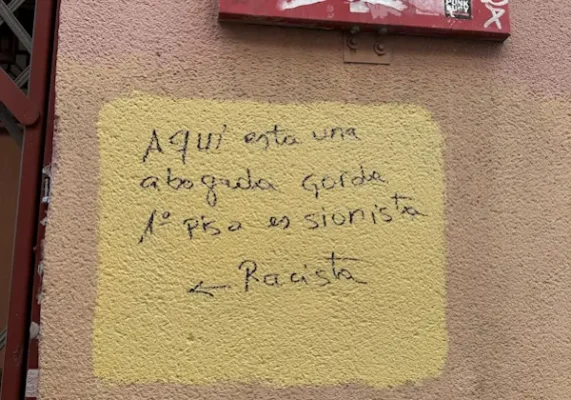 PUNK
AQUÍ esta una
abogada gorda
1º PISO es sionista
← Racista